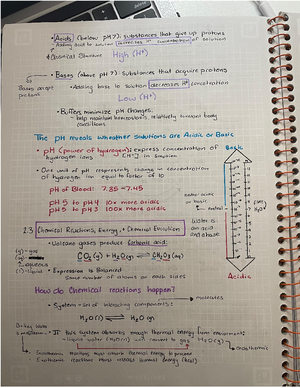 • Acids (below pH 7): substances that give up protons
Adding acid to solution increases H⁺ concentration of solution
Chemical Structure High (H⁺)
• Bases (above pH 7): substances that acquire protons
Bases accept protons
Adding base to solution decreases H⁺ concentration
Low (H⁺)
• Buffers minimize pH changes:
- help maintain homeostasis, relatively constant body conditions
The pH reveals whether solutions are Acidic or Basic
• pH (power of hydrogen): express concentration of hydrogen ions [H⁺] in solution
Basic
• One unit of pH represents change in concentration of hydrogen ion equal to factor of 10
pH of Blood: 7.35-7.45
pH 5 to pH 4 10x more acidic
pH 5 to pH 3 100x more acidic
neither acidic or basic
neutral
H₂O
Water is an acid and a base
Acidic
2.3 Chemical Reactions, Energy, + Chemical Evolution
• Volcanic gases produce Carbonic acid:
CO₂(g) + H₂O(g) ⇌ CH₂O₃(aq)
(g)-gas
(aq)-
aqueous
(l)-liquid
• Expression is Balanced
Same number of atoms on each sides
How do chemical reactions happen?
• System - set of interacting components:
molecules
H₂O(l) ⇌ H₂O(g)
• If this system absorbs enough thermal energy from environment:
- liquid water (H₂O(l)) will convert to gas H₂O(g)
endothermic
- Endothermic reactions must absorb thermal energy to proceed
- Exothermic reactions must release thermal energy (heat)